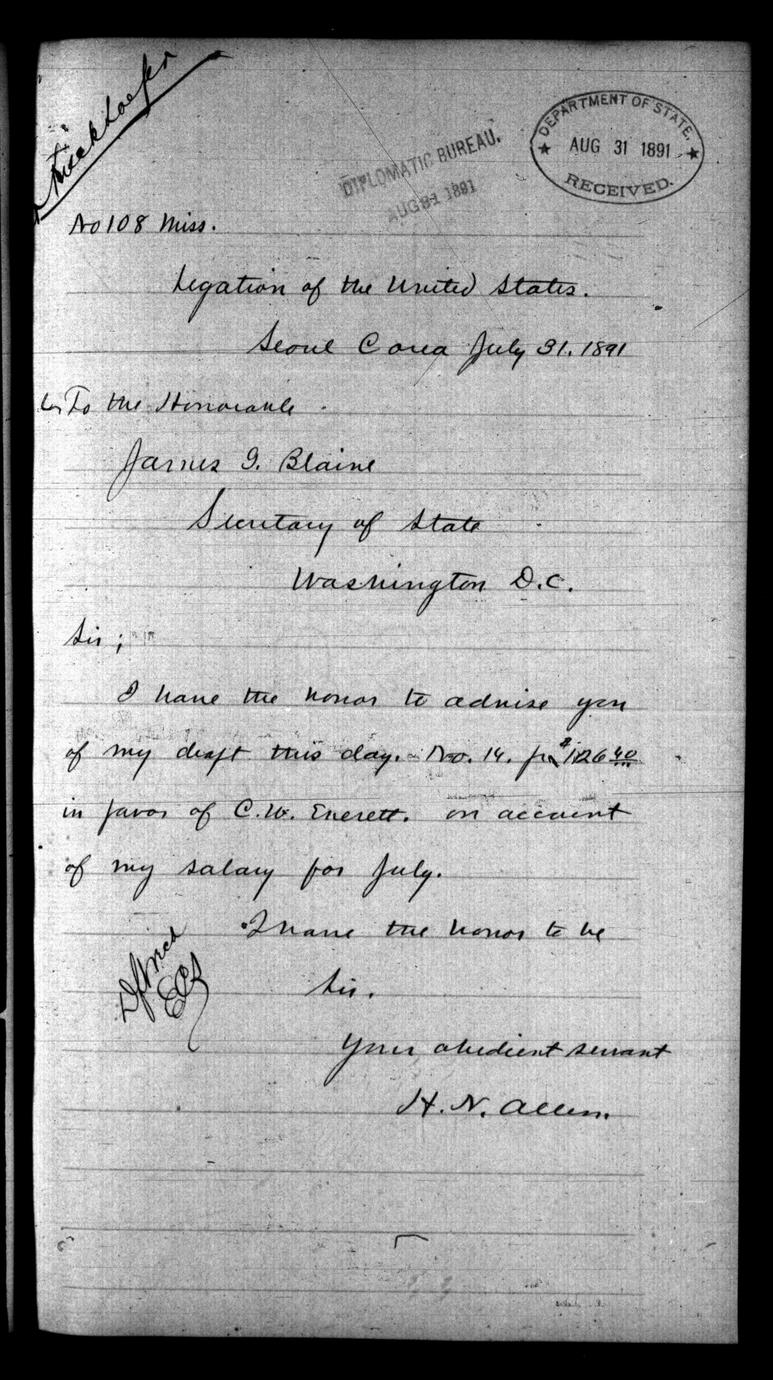 DEPARTMENT OF STATE.
AUG 31 1891
RECEIVED.
DIPLOMATIC BUREAU.
AUG 31 1891
No 108 Miss.
Legation of the United States.
Seoul Corea July 31. 1891
To the Honorable
James G. Blaine
Secretary of State
Washington D.C.
Sir;
I have the honor to advise you
of my draft this day. No. 14. for $126 40
in favor of C.W. Everett. on account
of my salary for July.
I have the honor to be
Sir.
Your obedient servant
H. N. Allen.